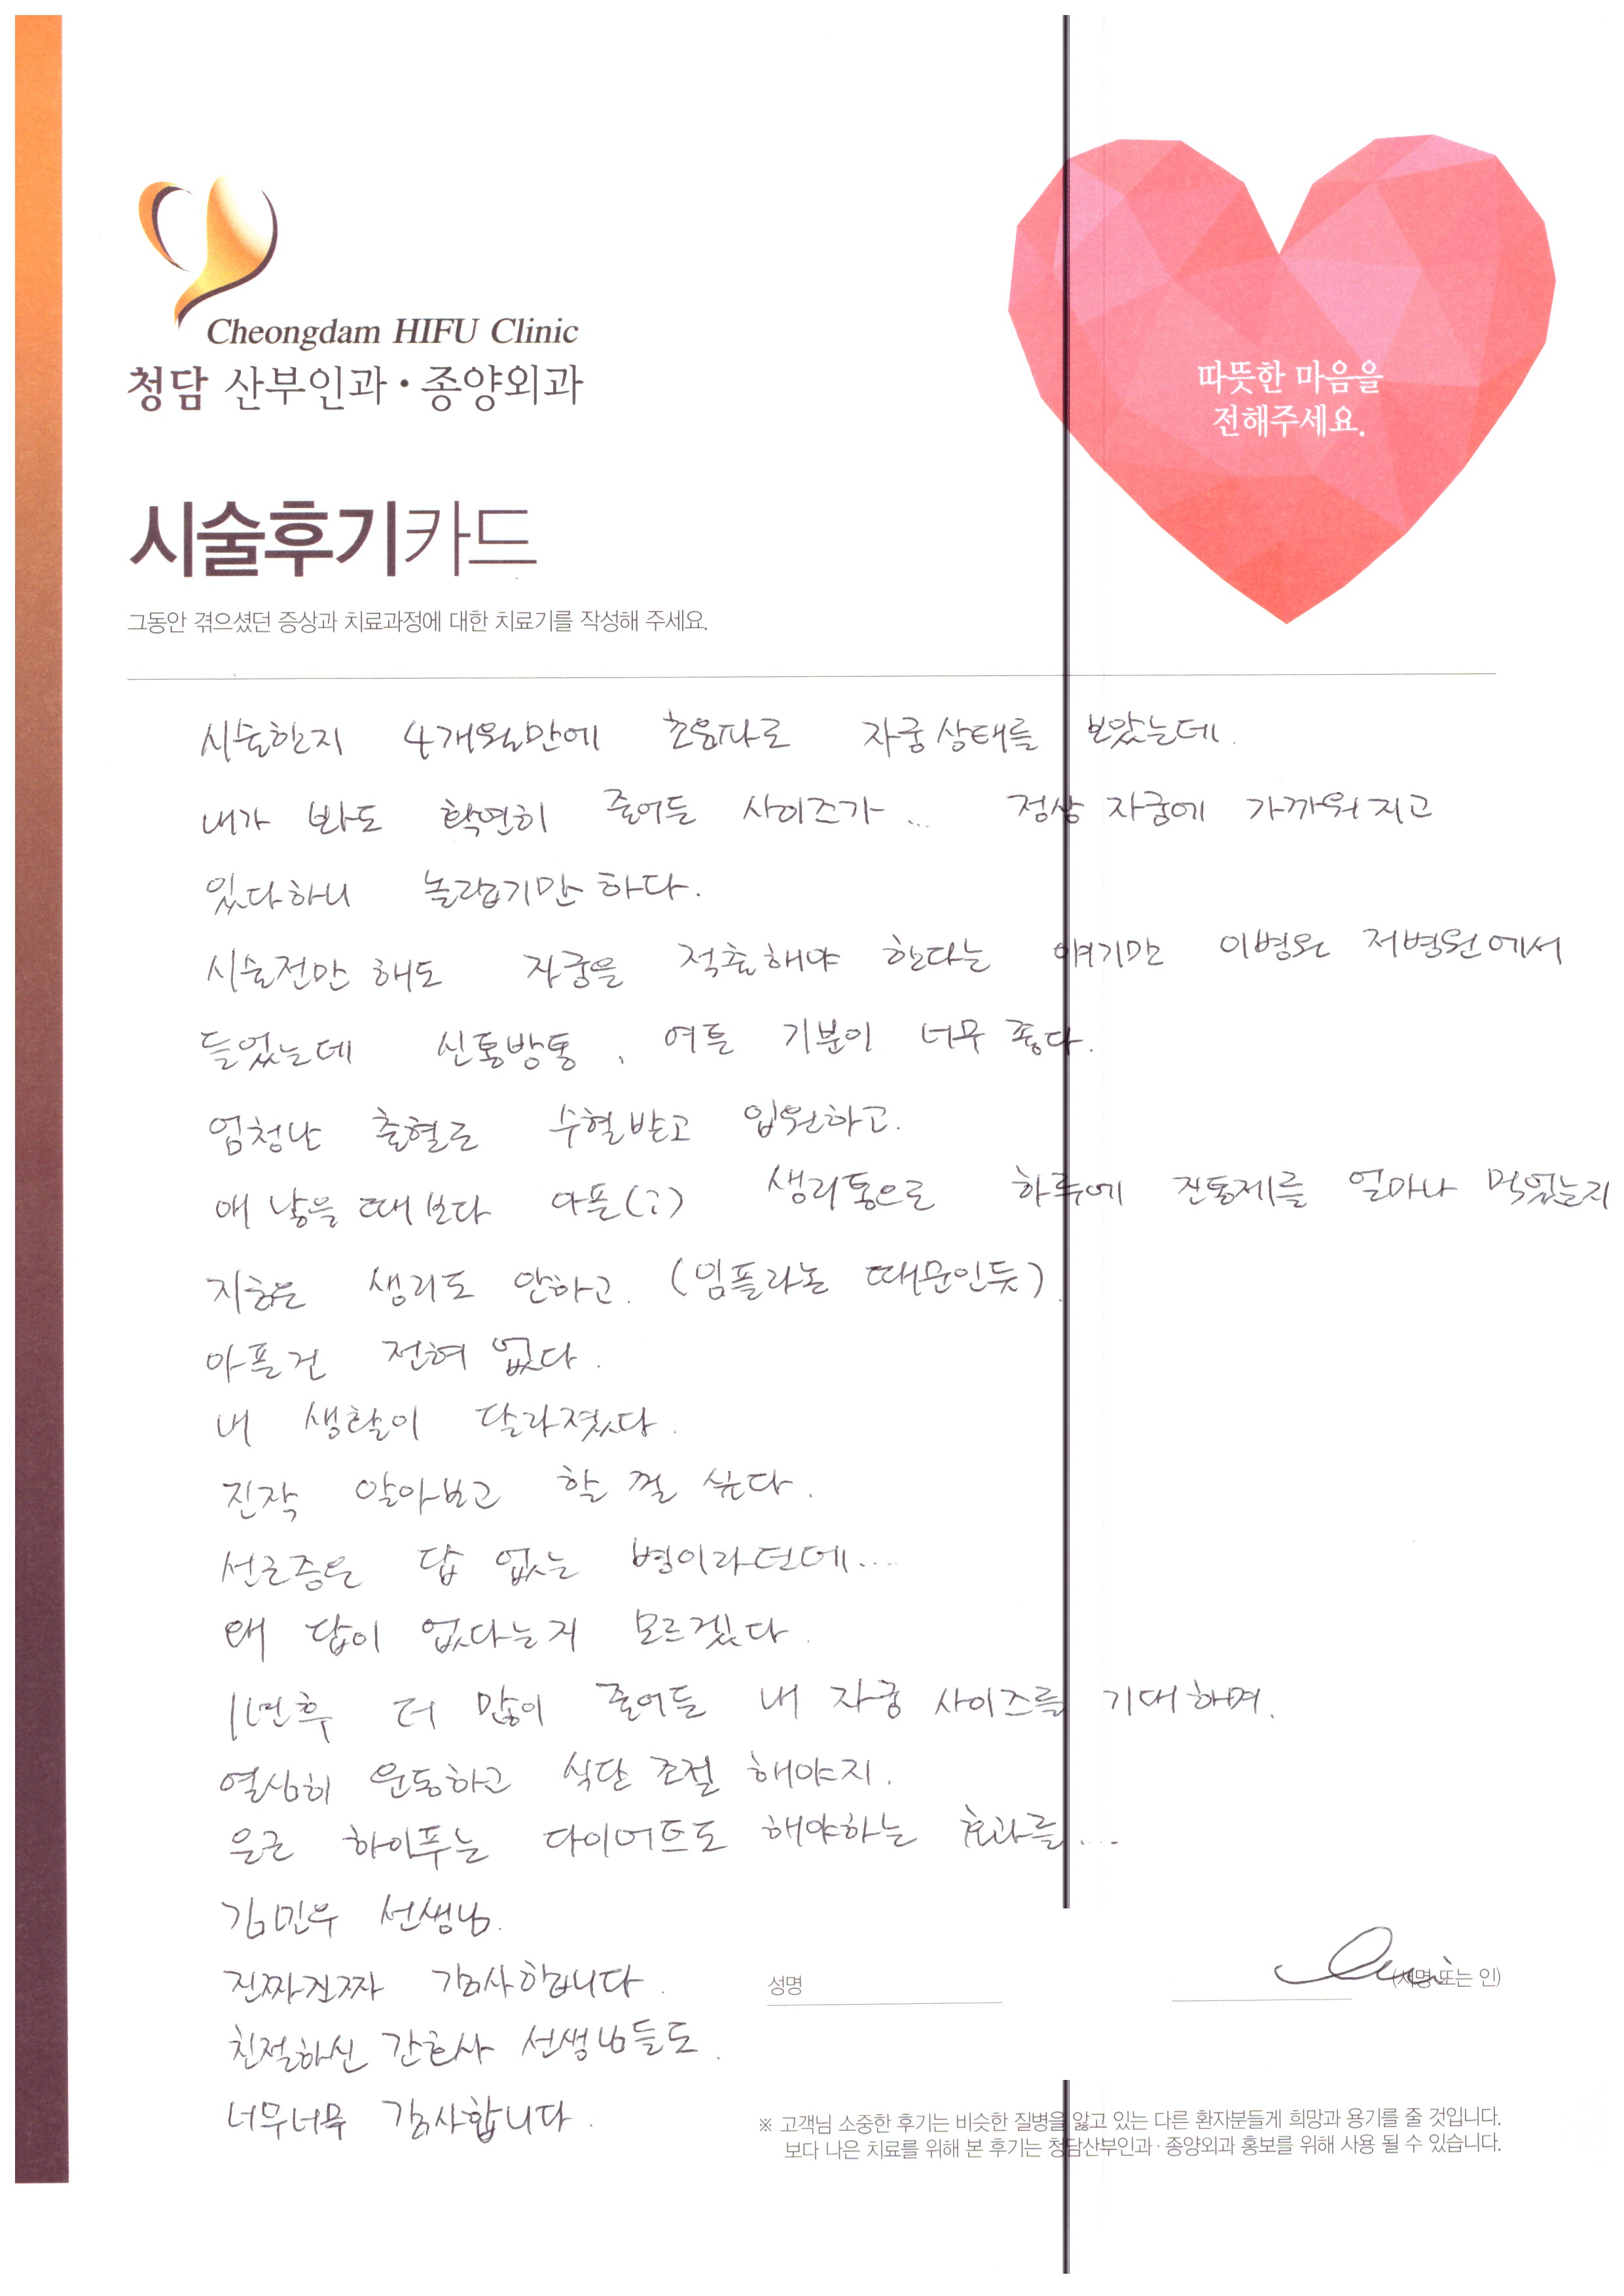 Cheongdam HIFU Clinic
청담 산부인과·종양외과
따뜻한 마음을
전해주세요.
시술후기카드
그동안 겪으셨던 증상과 치료과정에 대한 치료기를 작성해 주세요.
시술한지 4개월만에 초음파로 자궁상태를 보았는데.
내가 봐도 확연히 줄어든 사이즈가... 정상 자궁에 가까워지고
있다하니 놀랍기만 하다.
시술전만 해도 자궁을 적출해야 한다는 얘기만 이병원 저병원에서
들었는데 신통방통, 여튼 기분이 너무 좋다.
엄청난 출혈로 수혈받고 입원하고.
애 낳을 때보다 아픈(?) 생리통으로 하루에 진통제를 얼마나 먹었는지
지금은 생리도 안하고. (임플라논 때문인듯)
아픈건 전혀 없다.
내 생활이 달라졌다.
진작 알아보고 할 껄 싶다.
선근증은 답 없는 병이라던데....
왜 답이 없다는지 모르겠다.
1년후 더 많이 줄어들 내 자궁 사이즈를 기대하며.
열심히 운동하고 식단 조절 해야지.
은근 하이푸는 다이어트도 해야하는 효과를....
김민우 선생님.
진짜진짜 감사합니다.
친절하신 간호사 선생님들도.
너무너무 감사합니다.
성명
(서명 또는 인)
※ 고객님 소중한 후기는 비슷한 질병을 앓고 있는 다른 환자분들게 희망과 용기를 줄 것입니다.
보다 나은 치료를 위해 본 후기는 청담산부인과·종양외과 홍보를 위해 사용 될 수 있습니다.